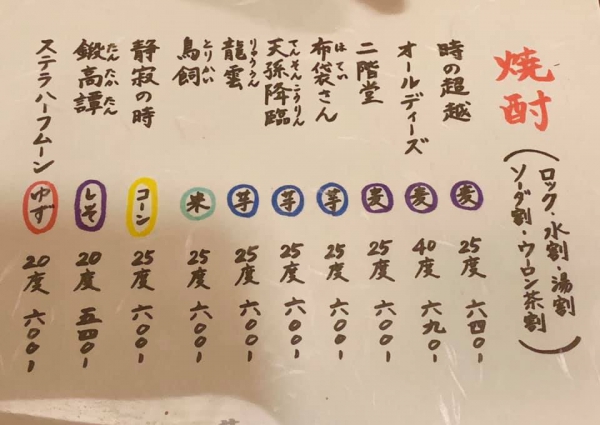 焼酎
(ロック・水割・湯割
ソーダ割・ウーロン茶割)
時の超越 麦 25度 六四〇-
オールディーズ 麦 40度 六九〇-
二階堂 麦 25度 六〇〇-
布袋さん ほてい 芋 25度 六〇〇-
天孫降臨 てんそんこうりん 芋 25度 六〇〇-
龍雲 りゅううん 芋 25度 六〇〇-
鳥飼 とりかい 米 25度 六〇〇-
静寂の時 コーン 25度 六〇〇-
鍛高譚 たんたかたん しそ 20度 五四〇-
ステラハーフムーン ゆず 20度 六〇〇-